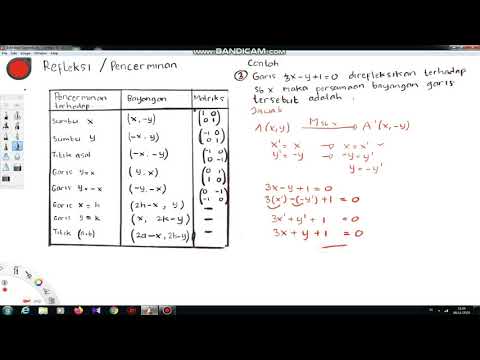 www.BANDICAM.com
Refleksi / Pencerminan
Pencerminan terhadap | Bayangan | Matriks
Sumbu x | (x, -y) | (1 0
0 1)
Sumbu y | (-x, y) | (-1 0
0 1)
Titik asal | (-x, -y) | (-1 0
0 -1)
Garis y=x | (y, x) | (0 1
1 0)
Garis y=-x | (-y, -x) | (0 -1
-1 0)
Garis x=h | (2h-x, y) | -
Garis y=k | (x, 2k-y) | -
Titik (a,b) | (2a-x, 2b-y) | -
Contoh
Garis 3x-y+1=0 direfleksikan terhadap
sb x maka persamaan bayangan garis
tersebut adalah .
Jawab
A(x,y) Msbx → A'(x,-y)
x' = x → x = x'
y' = -y → -y = y'
y = -y'
3x-y+1=0
3(x')-(-y')+1=0
3x'+y'+1=0
3x+y+1=0